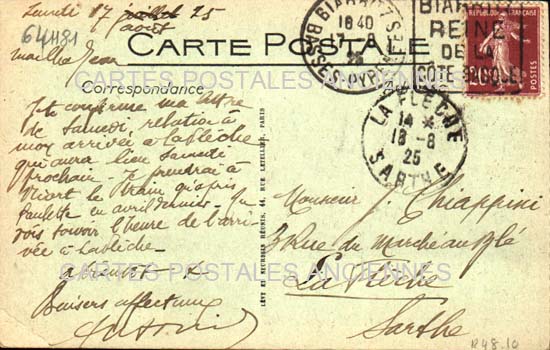 Lundi 17 juillet 25
août
641181
CARTE POSTALE
Correspondance
CARTES POSTALES ANCIENNES
BIARRITZ
18 40
17-8
25
BSSES PYRENEES
BIARRITZ
REINE
DE LA
CÔTE BASQUE
REPUBLIQUE FRANCAISE
POSTES
LA FLECHE
14 *
18-8
25
SARTHE
Je te confirme ma lettre
de Samedi, relative à
mon arrivée à La Flèche
qui aura lieu Samedi
prochain. Je prendrai à
Niort le train qu'a pris
Paulette en avril dernier. Tu
vois savoir l'heure de l'arri-
vée à La Flèche.
Baisers affectueux
LÉVY ET NEURDEIN RÉUNIS, 44, RUE LETELLIER, PARIS
Monsieur J. Chiappini
3 Rue du Marché au Blé
La Flèche
Sarthe
CARTES POSTALES ANCIENNES
R48.10